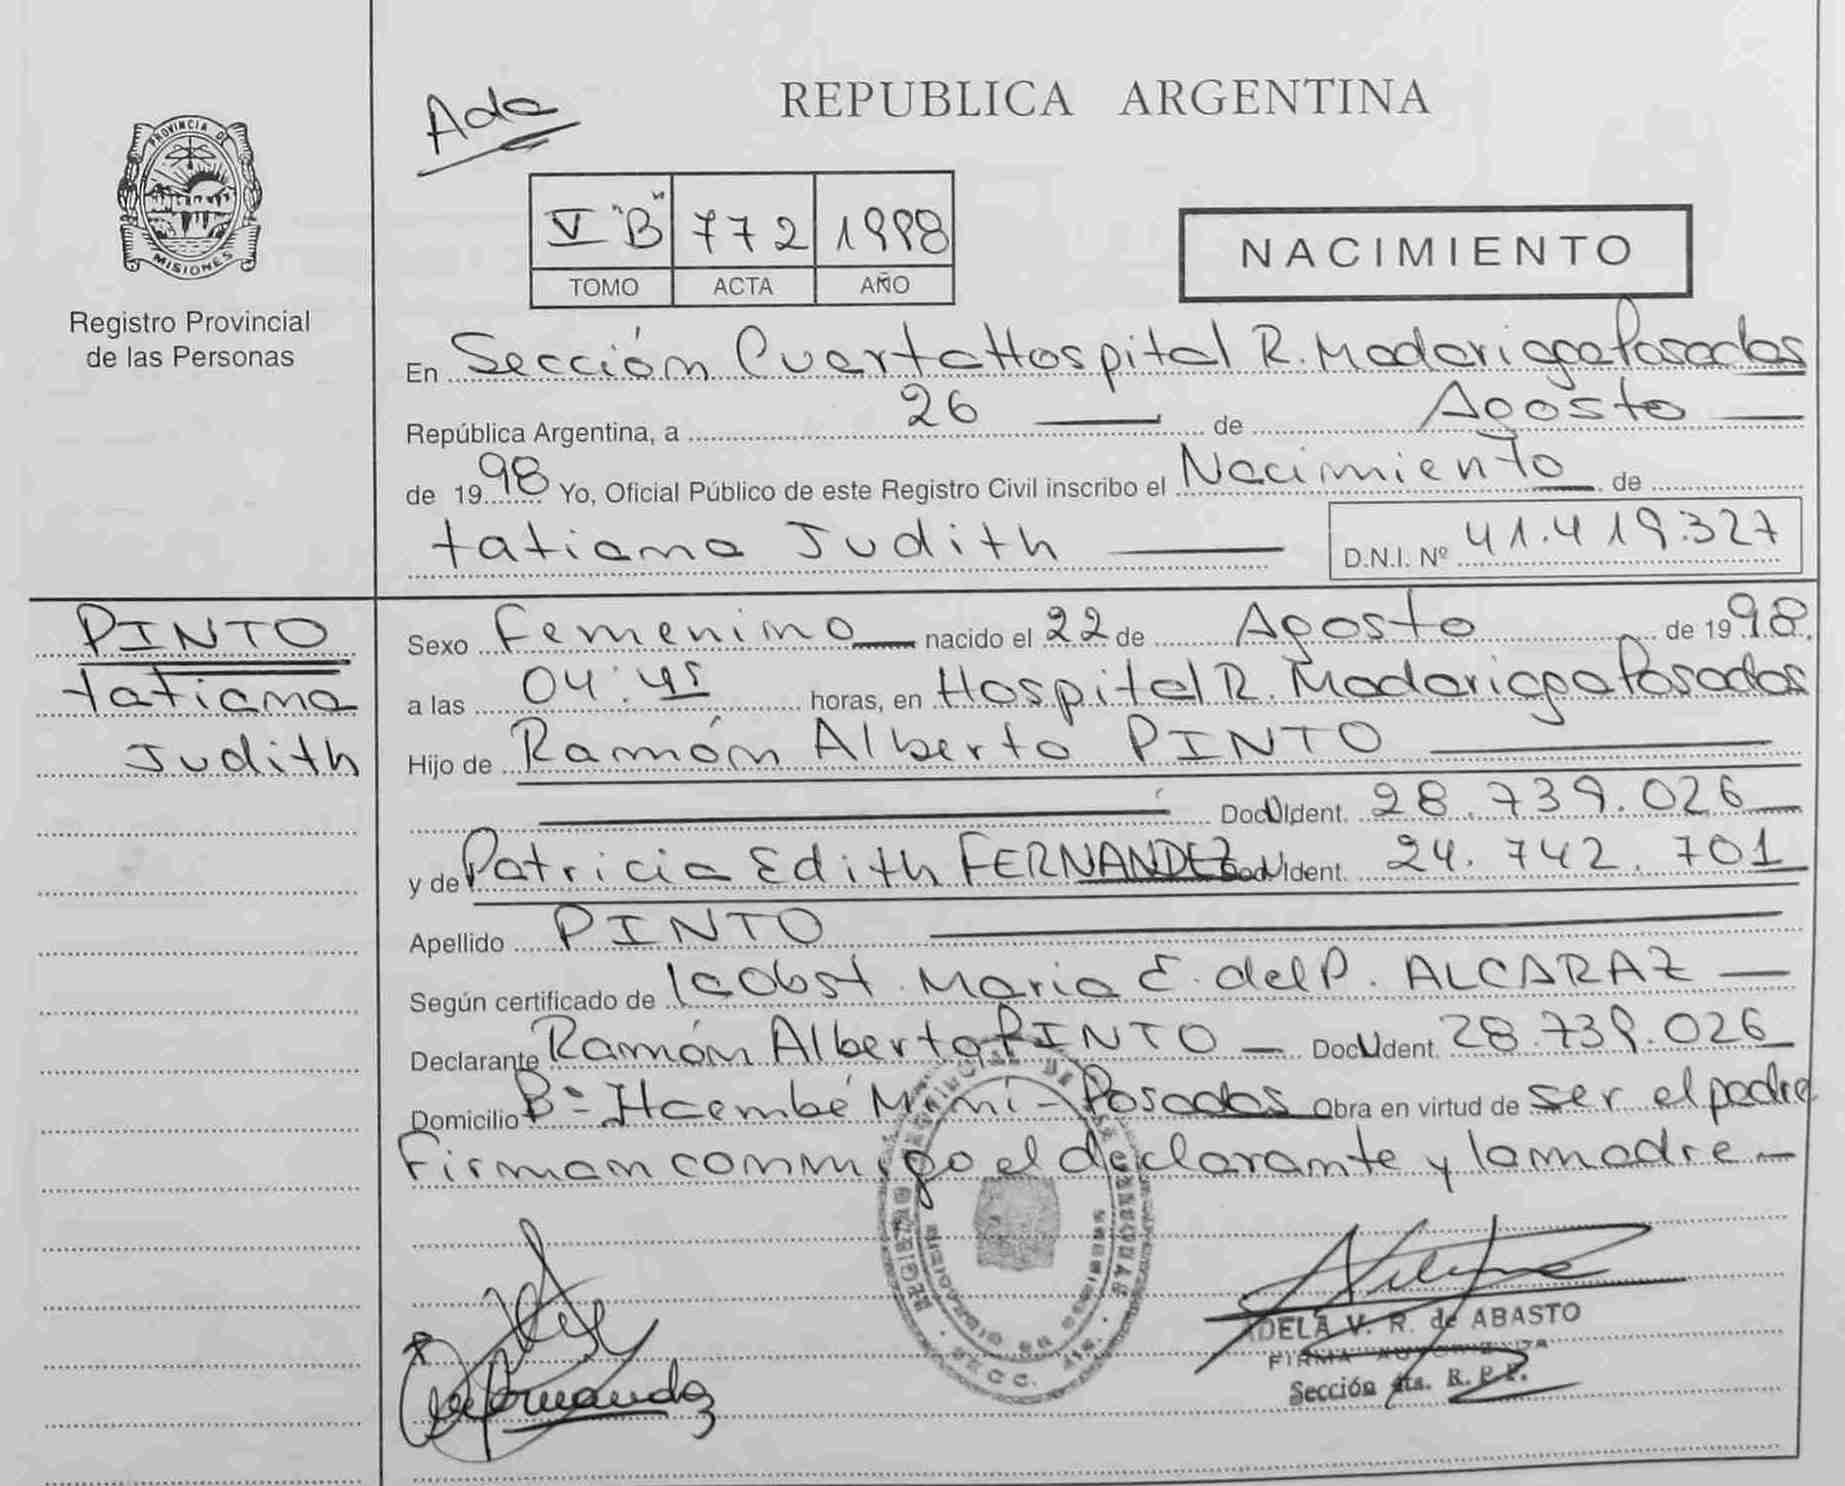 Ada
REPUBLICA ARGENTINA
PROVINCIA DE
MISIONES
Registro Provincial
de las Personas
V "B" 772 1998
TOMO ACTA AÑO
NACIMIENTO
En Sección Cuarta Hospital R. Madariaga Posadas
República Argentina, a 26 de Agosto
de 1998 Yo, Oficial Público de este Registro Civil inscribo el Nacimiento de
tatiana Judith
D.N.I. Nº 41.419.327
PINTO
tatiana
Judith
Sexo Femenino nacido el 22 de Agosto de 1998.
a las 04:45 horas, en Hospital R. Madariaga Posadas
Hijo de Ramón Alberto PINTO
Doc U Ident. 28.739.026
y de Patricia Edith FERNANDEZ Doc U Ident. 24.742.701
Apellido PINTO
Según certificado de Obst. Maria E. del P. ALCARAZ
Declarante Ramón Alberto PINTO Doc U Ident. 28.739.026
Domicilio Bº Itaembé Miní - Posadas Obra en virtud de ser el padre
Firman conmigo el declarante y la madre
ADELA V. R. de ABASTO
FIRMA AUTORIZADA
Sección 4ta. R. P. P.